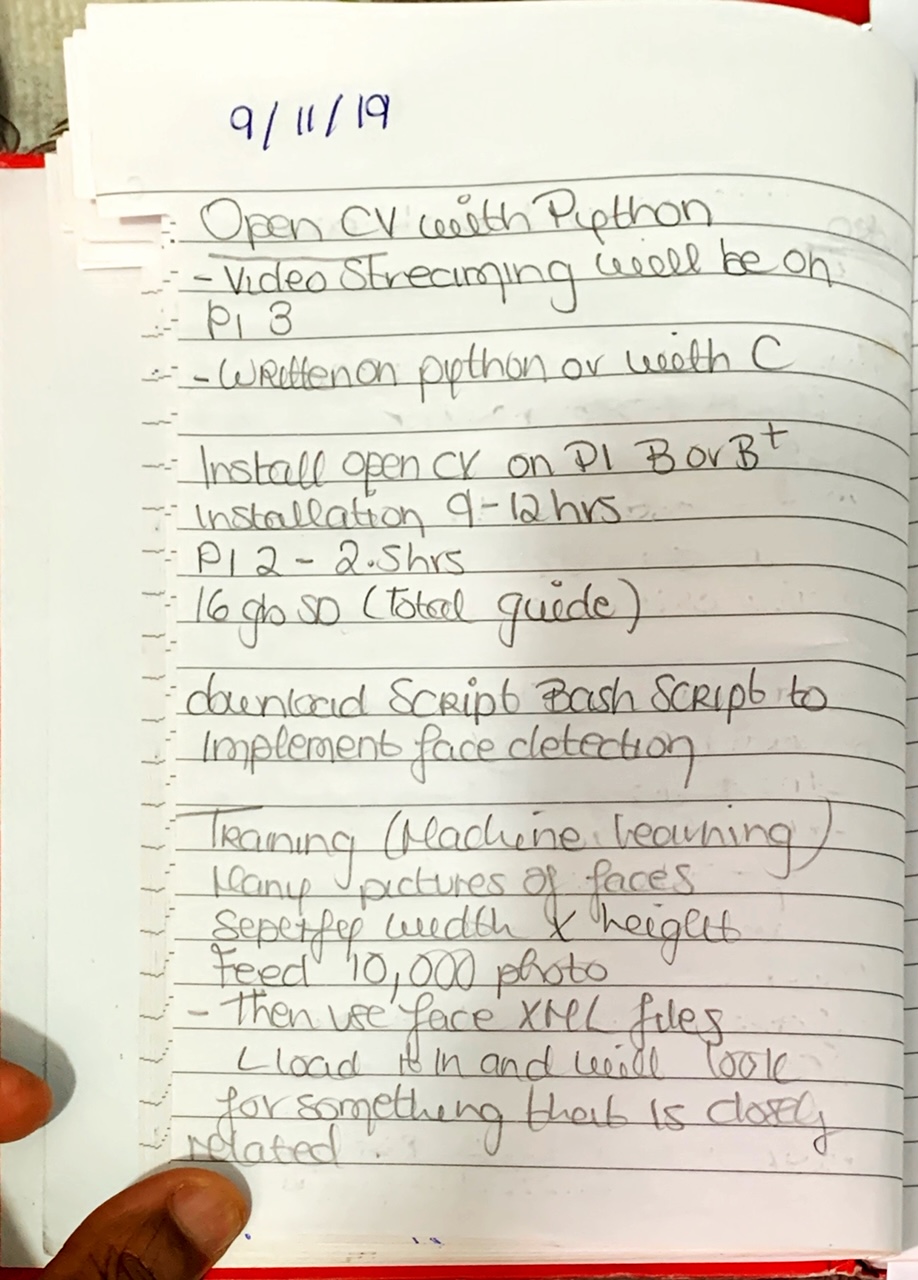 9/11/19
Open CV with Python
- Video Streaming will be on
Pi 3
- Written on python or with C
Install open cv on PI B or B+
Installation 9-12 hrs
PI 2 - 2.5hrs
16 gb SD (Total guide)
download Script Bash Script to
Implement face detection
Training (Machine learning)
Many pictures of faces
width x height
Feed 10,000 photo
- Then use face XML files
Lload it in and will look
for something that is closely
related.